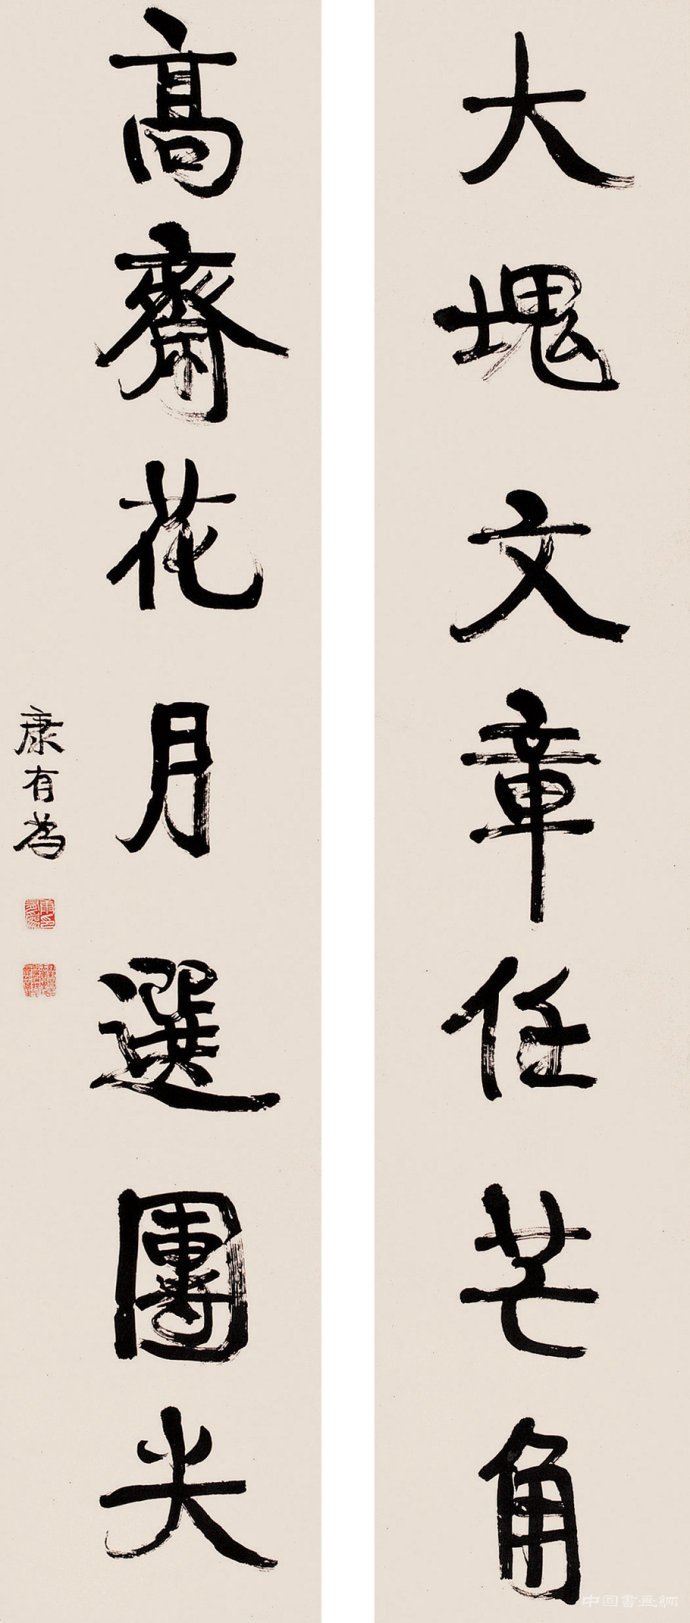 大塊文章任芒角
高齋花月選團尖
康有為
中国書画網